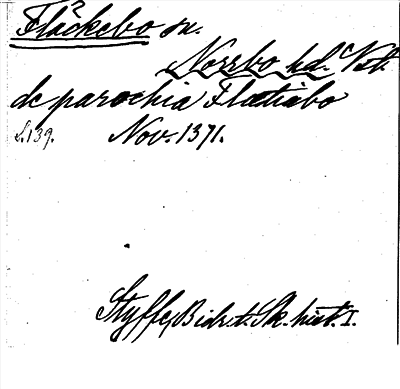 Fläckebo sn.
Norrbo hd. Vstm.
de parochia Flætiabo
S. 139. Nov. 1371.
Styffe, Bidr. t. Sk. hist. I.